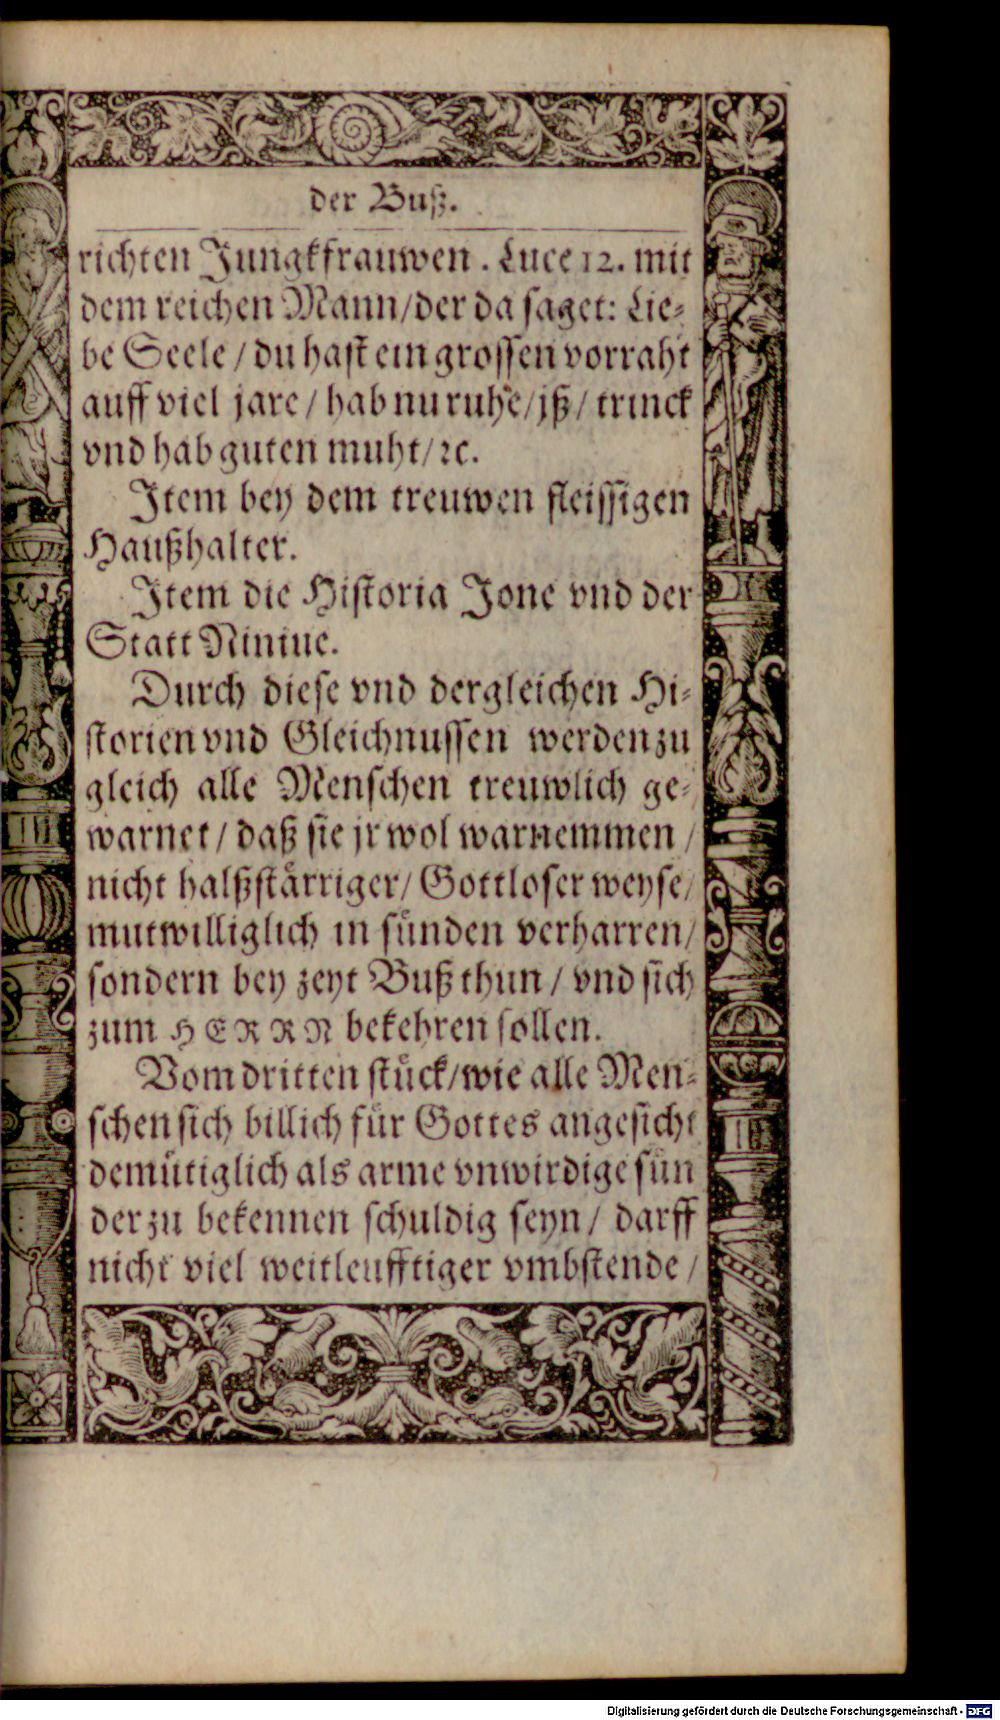 der Buß.
richten Jungkfrauwen. Luce 12. mit
dem reichen Mann/der da saget: Lie-
be Seele/du hast ein grossen vorraht
auff viel jare/hab nu ruhe/jß/trinck
vnd hab guten muht/ꝛc.
Item bey dem treuwen fleissigen
Haußhalter.
Item die Historia Jone vnd der
Statt Niniue.
Durch diese vnd dergleichen Hi-
storien vnd Gleichnussen werden zu
gleich alle Menschen treuwlich ge-
warnet/daß sie jr wol warnemmen/
nicht halßstårriger/Gottloser weyse/
mutwilliglich in sůnden verharren/
sondern bey zeyt Buß thun/vnd sich
zum HERRN bekehren sollen.
Vom dritten stůck/wie alle Men-
schen sich billich fůr Gottes angesicht
demůtiglich als arme vnwirdige sůn
der zu bekennen schuldig seyn/darff
nicht viel weitleufftiger vmbstende/
Digitalisierung gefördert durch die Deutsche Forschungsgemeinschaft - DFG